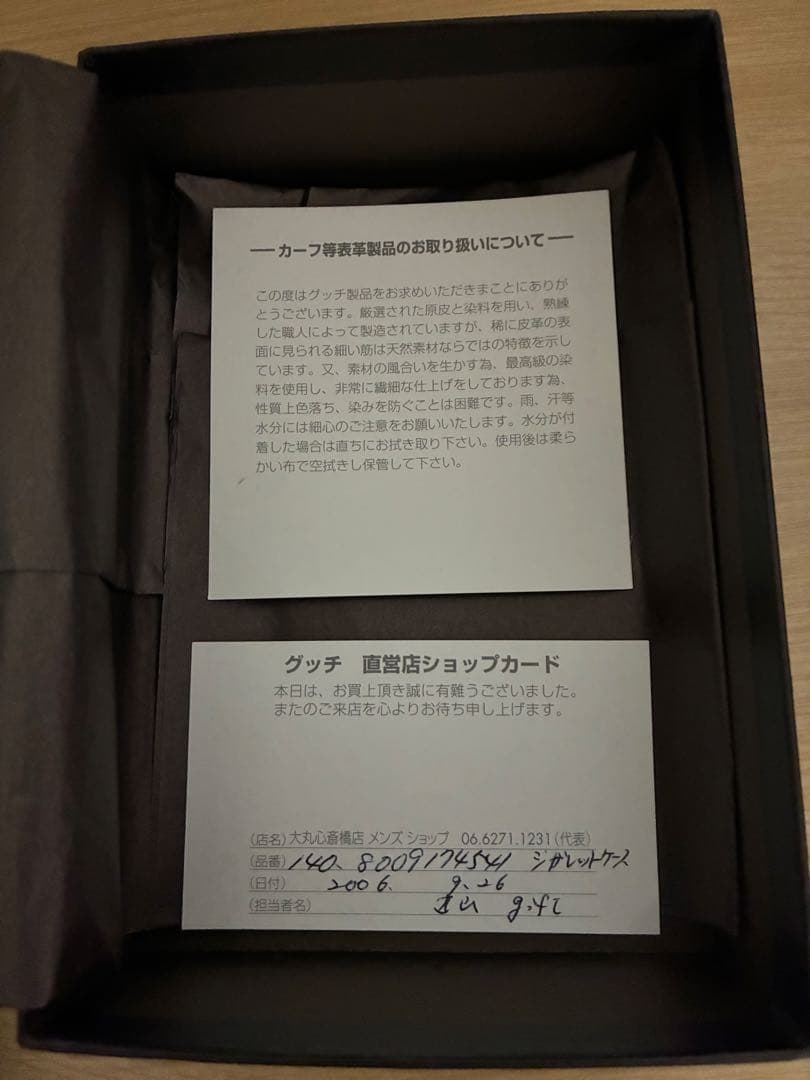 カーフ等表革製品のお取り扱いについて
この度はグッチ製品をお求めいただきまことにありが
とうございます。厳選された原皮と染料を用い、熟練
した職人によって製造されていますが、稀に皮革の表
面に見られる細い筋は天然素材ならではの特徴を示し
ています。又、素材の風合いを生かす為、最高級の染
料を使用し、非常に繊細な仕上げをしております為、
性質上色落ち、染みを防ぐことは困難です。雨、汗等
水分には細心のご注意をお願いいたします。水分が付
着した場合は直ちにお拭き取り下さい。使用後は柔ら
かい布で空拭きし保管して下さい。
グッチ 直営店ショップカード
本日は、お買上頂き誠に有難うございました。
またのご来店を心よりお待ち申し上げます。
(店名) 大丸心斎橋店 メンズ ショップ 06.6271.1231(代表)
(品番) 140、8009174541 シガレットケース
(日付) 2006、 9、26
(担当者名)